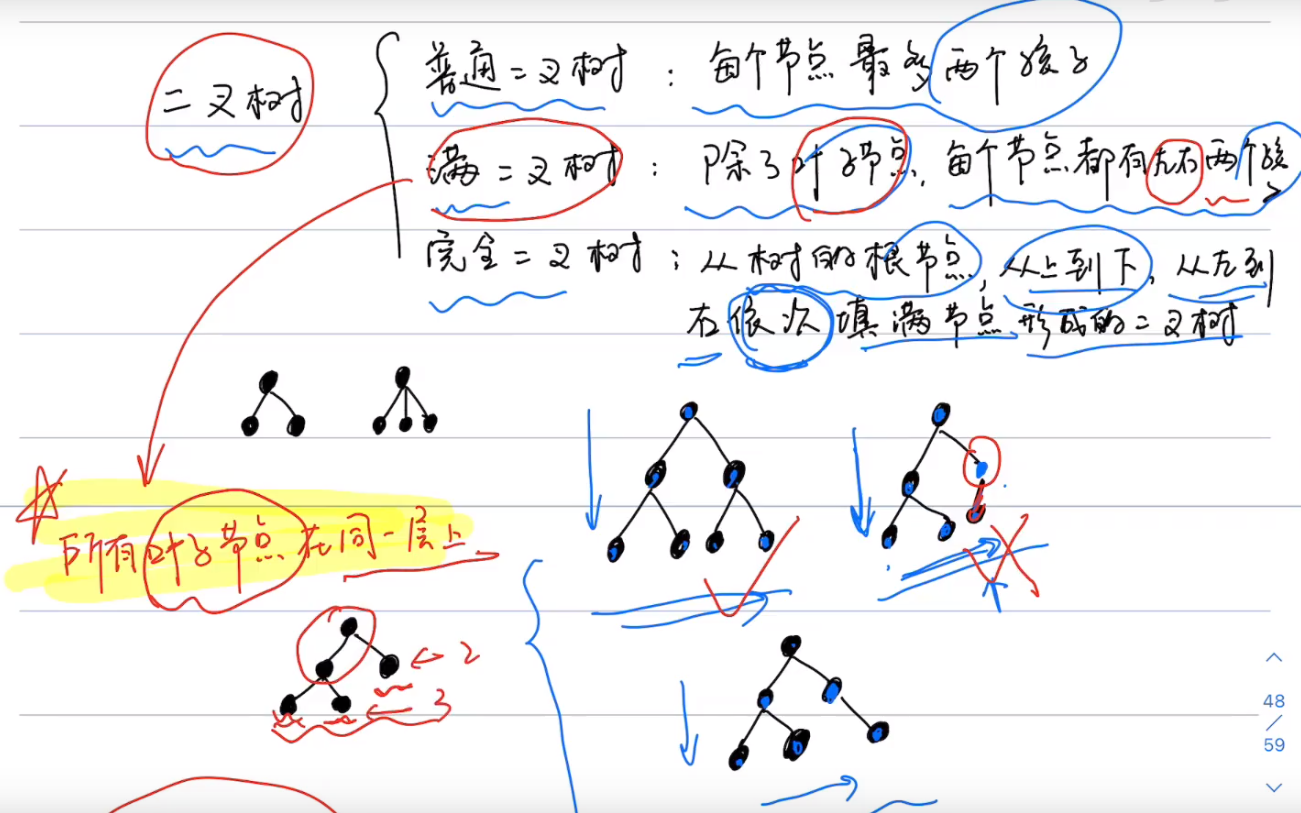 二叉树
普通二叉树：每个节点最多两个孩子
满二叉树：除了叶子节点，每个节点都有左右两个孩子
完全二叉树：从树的根节点，从上到下，从左到
右依次填满节点形成的二叉树
所有叶子节点在同一层上
2
3
48
/
59